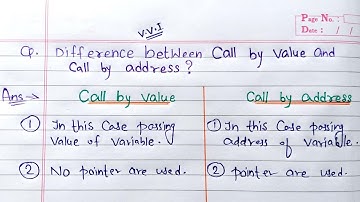 V.V.I
Page No. :
Date : / /
Q. Difference between Call by value and
Call by address ?
Ans → Call by value Call by address
① In this Case passing ① In this Case passing
Value of variable. address of variable.
② No pointer are used. ② pointer are used.